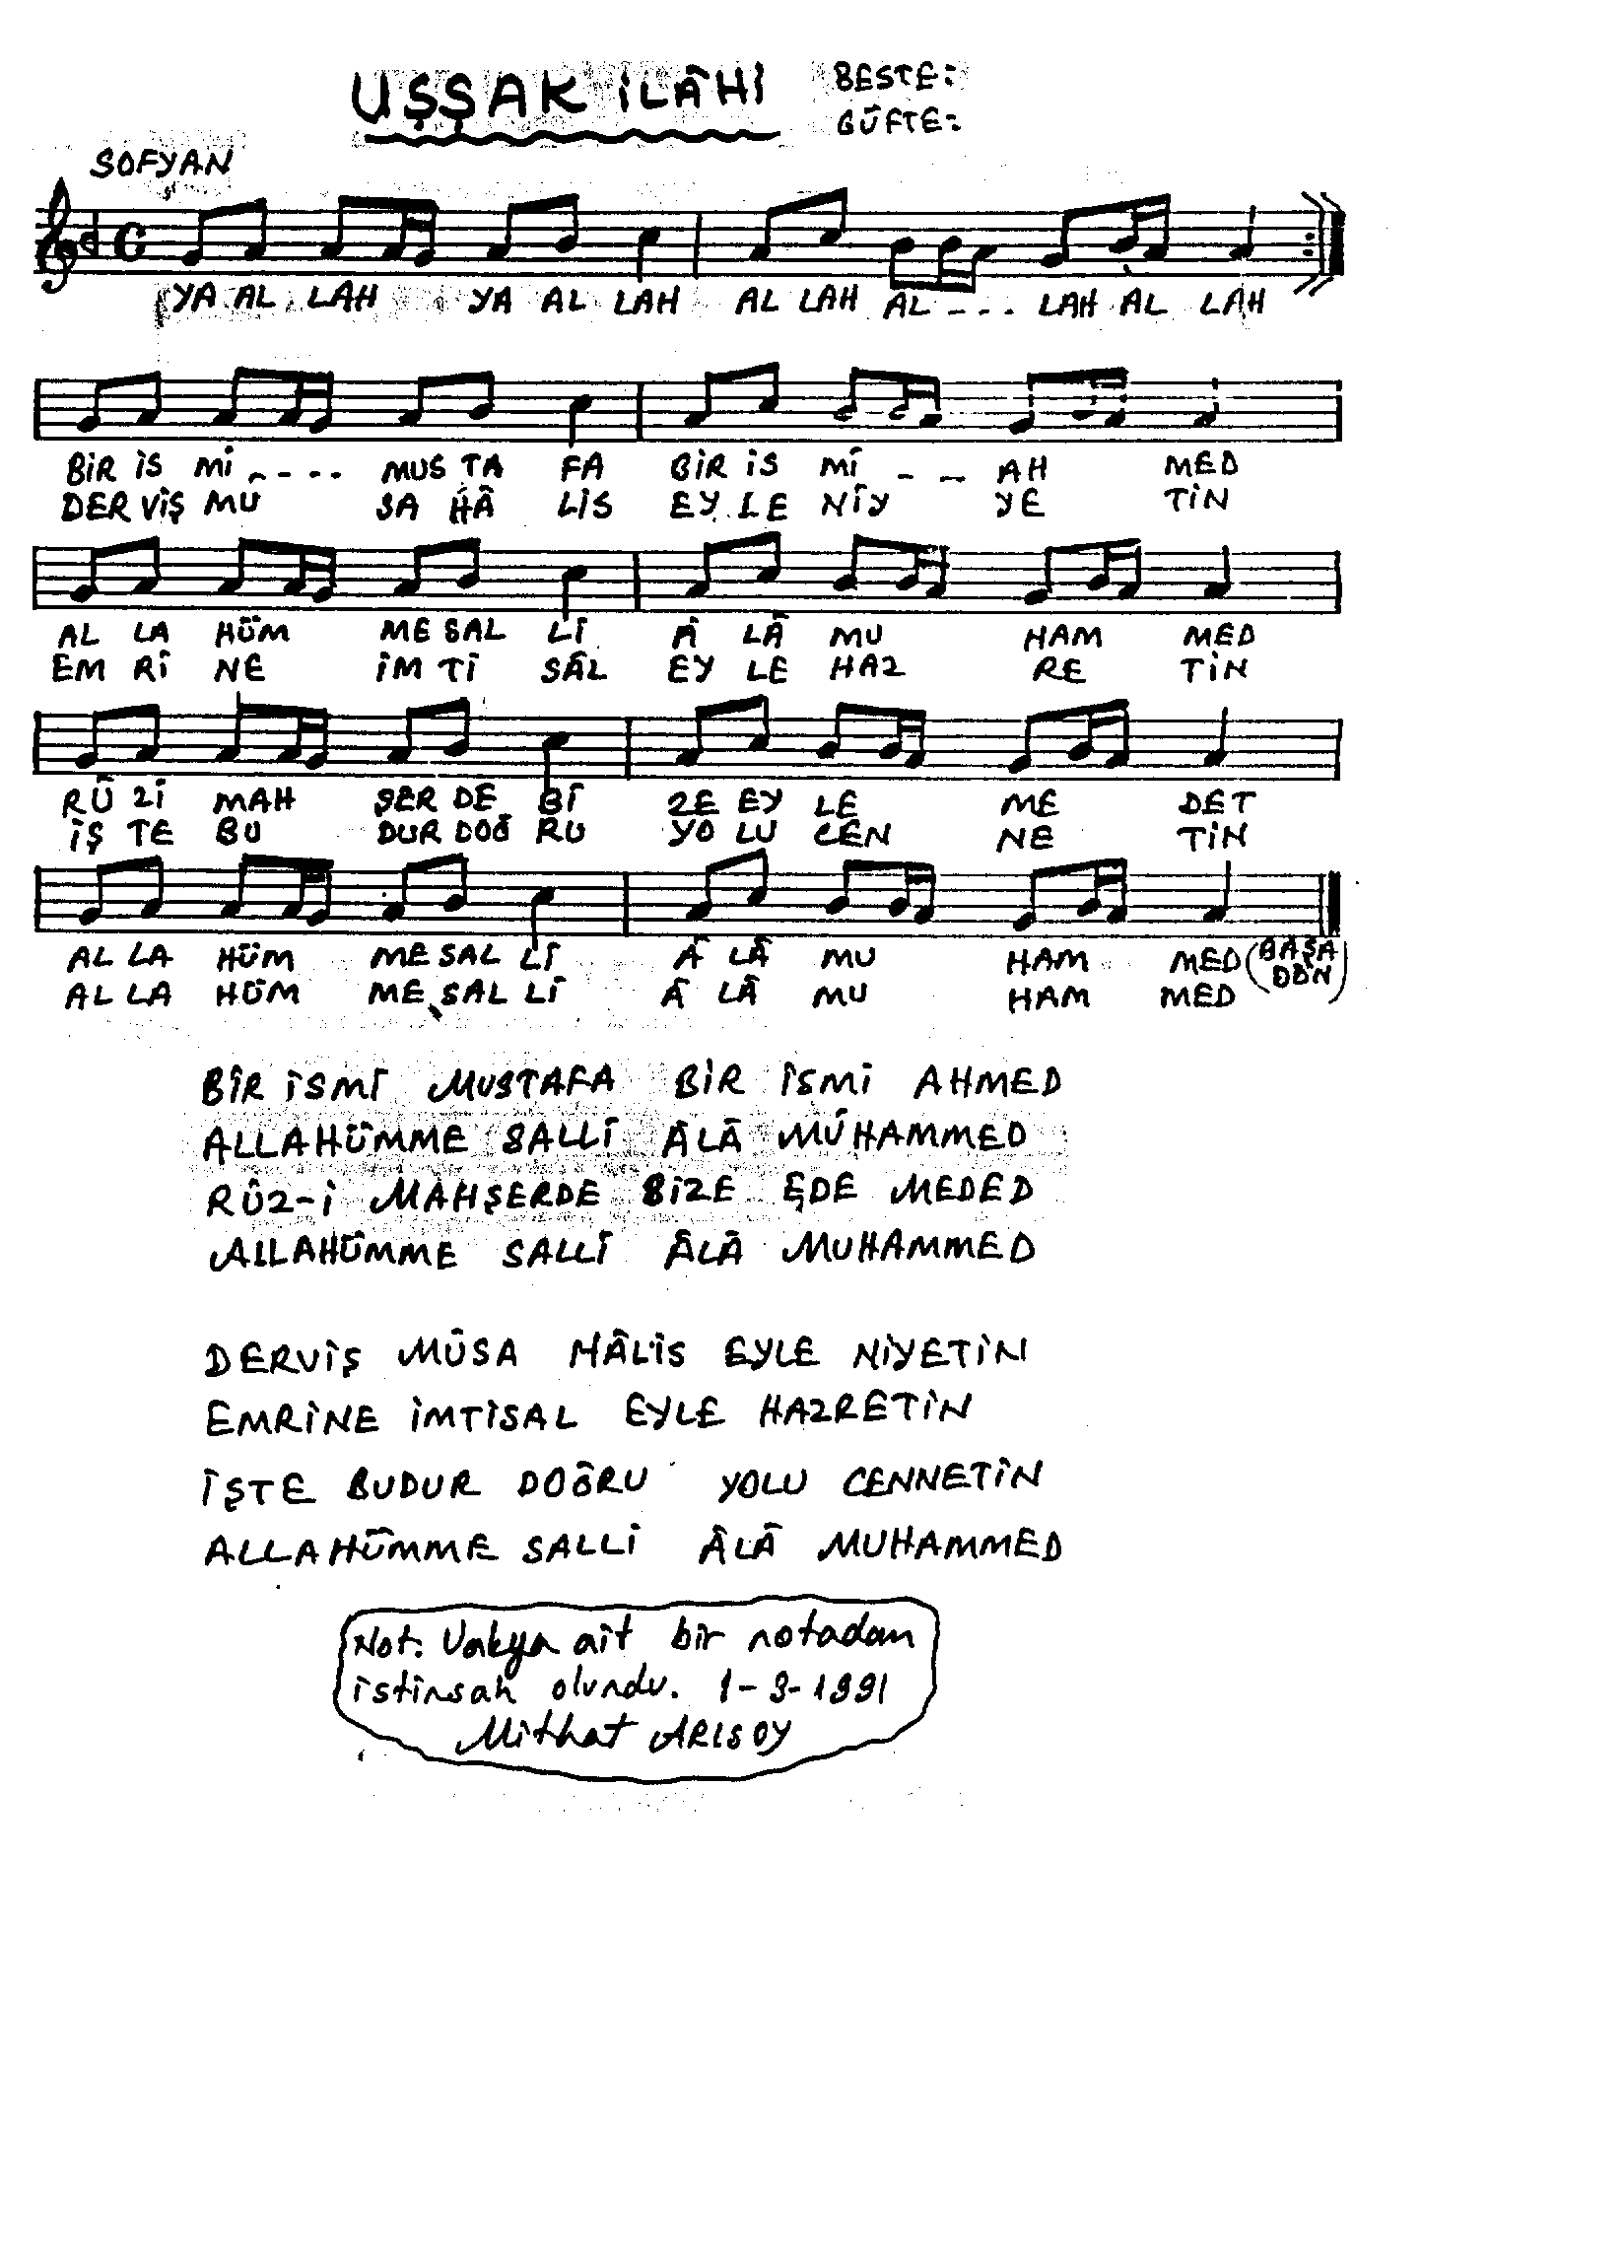 UŞŞAK İLÂHİ
BESTE:
GÜFTE:
SOFYAN
YA AL LAH YA AL LAH AL LAH AL - - - LAH AL LAH
BİR İS Mİ - - - - MUS TA FA BİR İS Mİ - - AH MED
DER VİŞ MU SA HÂ LİS EY LE NİY YE TİN
AL LA HÜM ME SAL Lİ Â LÂ MU HAM MED
EM Rİ NE İM Tİ SÂL EY LE HAZ RE TİN
RÛ Zİ MAH ŞER DE Bİ ZE EY LE ME DET
İŞ TE BU DUR DOĞ RU YO LU CEN NE TİN
AL LA HÜM ME SAL Lİ Â LÂ MU HAM MED (BAŞA DÖN)
AL LA HÜM ME SAL Lİ Â LÂ MU HAM MED
BİR İSMİ MUSTAFA BİR İSMİ AHMED
ALLAHÜMME SALLİ ÂLÂ MUHAMMED
RÛZ-İ MAHŞERDE BİZE EDE MEDED
ALLAHÜMME SALLİ ÂLÂ MUHAMMED
DERVİŞ MÛSA HÂLİS EYLE NİYETİN
EMRİNE İMTİSAL EYLE HAZRETİN
İŞTE BUDUR DOĞRU YOLU CENNETİN
ALLAHÜMME SALLİ ÂLÂ MUHAMMED
Not: Vakfa ait bir notadan
istinsah olundu. 1-9-1991
Mithat ARISOY